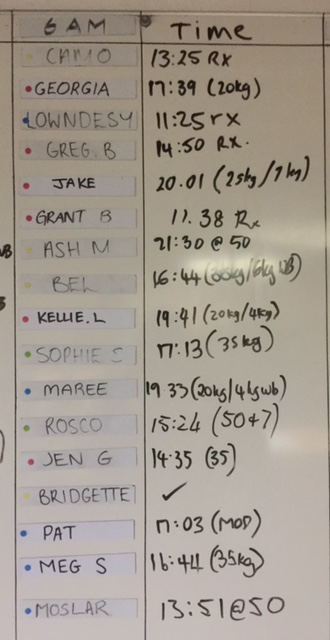 6AM Time
CAMO 13:25 Rx
GEORGIA 17:39 (20kg)
LOWNDESY 11:25 rx
GREG. B 14:50 Rx.
JAKE 20.01 (25kg/7kg)
GRANT B 11.38 Rx
ASH M 21:30 @ 50
BEL 16:44 (30kg/6kg WB)
KELLIE.L 19:41 (20kg/4kg)
SOPHIE S 17:13 (35kg)
MAREE 19 33 (20kg/4kgwb)
ROSCO 15:24 (50+7)
JEN G 14:35 (35)
BRIDGETTE ✓
PAT 17:03 (MOD)
MEG S 16:44 (35kg)
MOSLAR 13:51@50